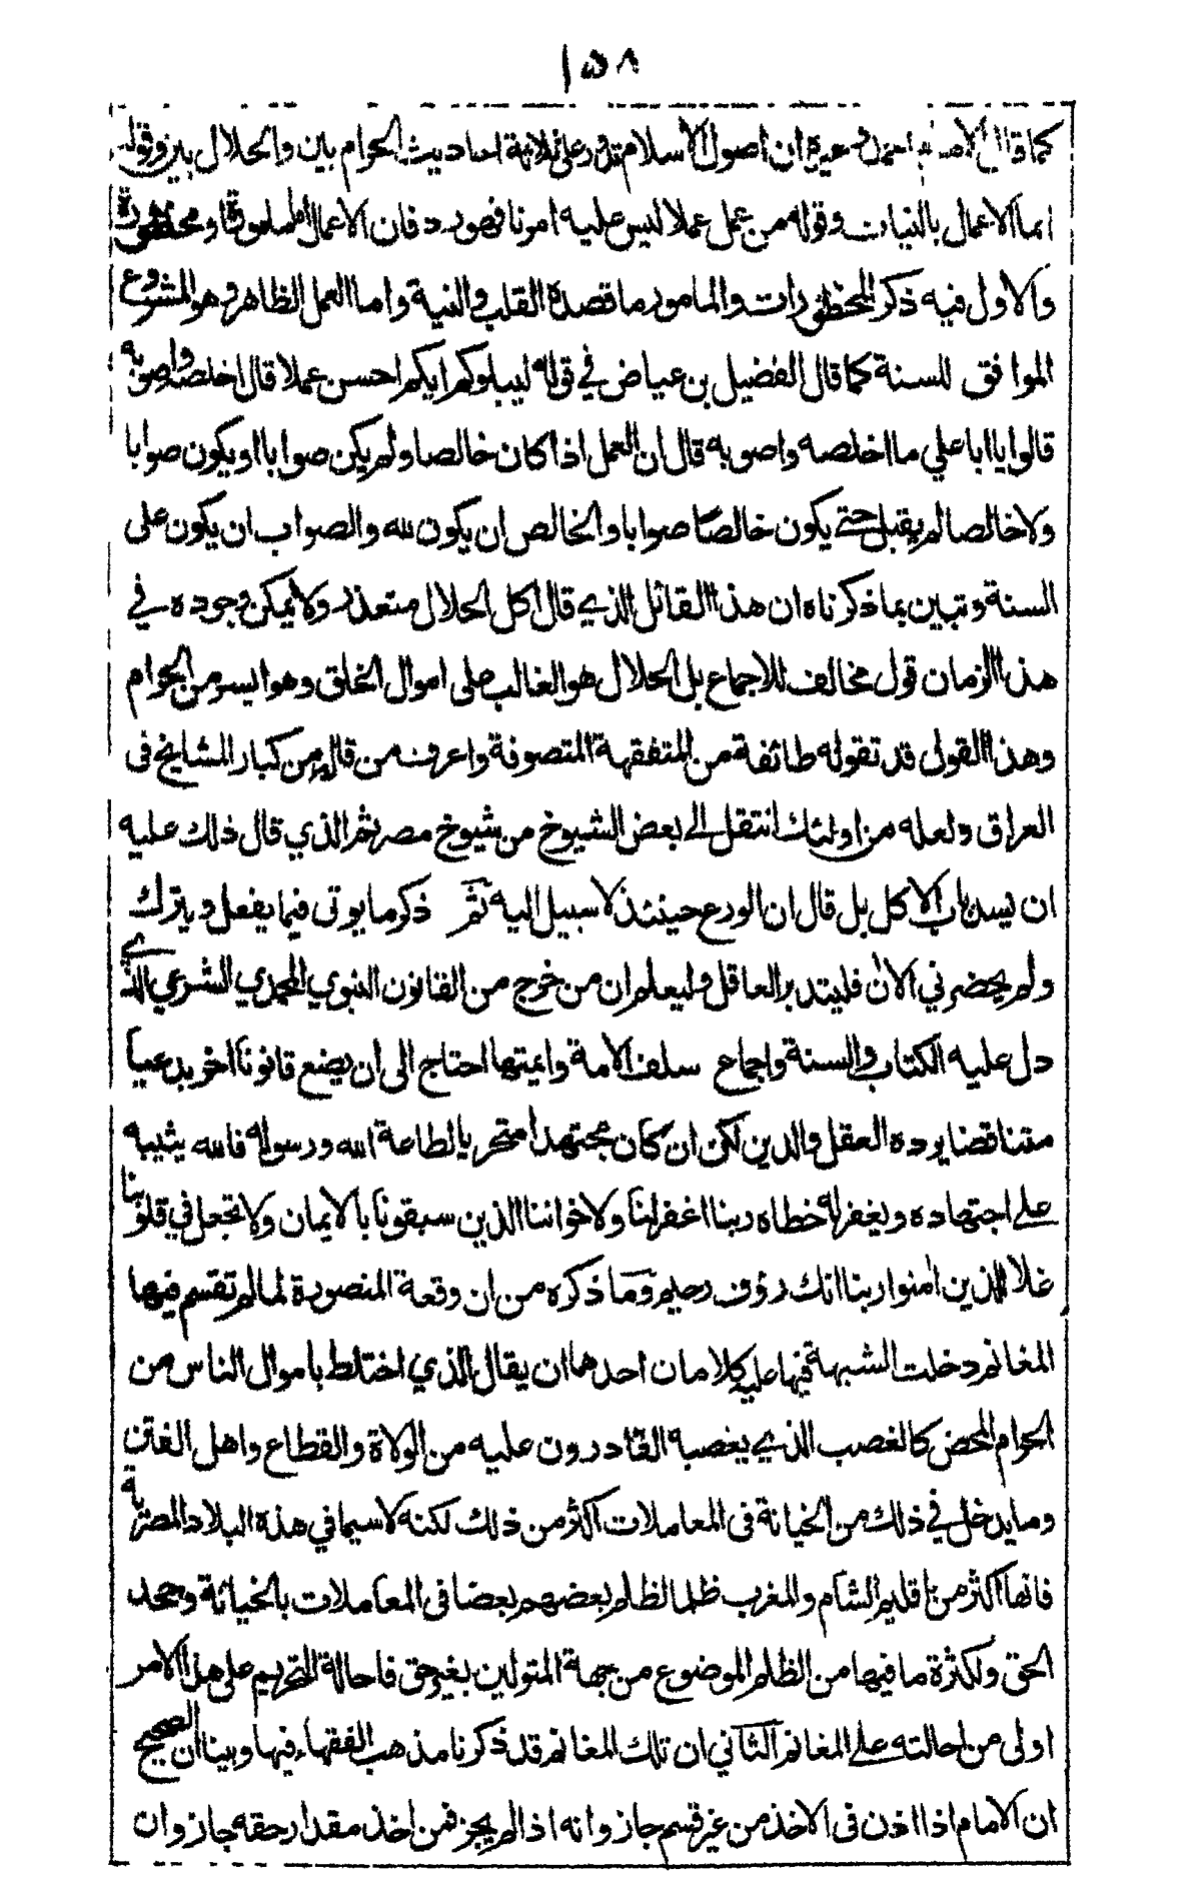 ١٥٨
كما قال الامام احمد وغيره ان اصول الاسلام تدور على ثلاثة احاديث الحرام بين والحلال بين وقوله
انما الاعمال بالنيات وقوله من عمل عملا ليس عليه امرنا فهو رد فان الاعمال اما مامورة او محظورة
والاول فيه ذكر المحظورات والمامور ما قصده القلب والنية واما العمل الظاهر وهو المشروع
الموافق للسنة كما قال الفضيل بن عياض في قوله ليبلوكم ايكم احسن عملا قال اخلصه واصوبه
قالوا يا ابا علي ما اخلصه واصوبه قال ان العمل اذا كان خالصا ولم يكن صوابا او يكون صوابا
ولا خالصا لم يقبل حتى يكون خالصا صوابا والخالص ان يكون لله والصواب ان يكون على
السنة وتبين بما ذكرناه ان هذا القائل الذي قال اكل الحلال متعذر ولا يمكن وجوده في
هذا الزمان قول مخالف للاجماع بل الحلال هو الغالب على اموال الخلق وهو ايسر من الحرام
وهذا القول قد تقوله طائفة من المتفقهة المتصوفة واعرف من قاله من كبار المشايخ في
العراق ولعله من اولئك انتقل الى بعض الشيوخ من شيوخ مصر ثم الذي قال ذلك عليه
ان يسد باب الاكل بل قال ان الورع حينئذ لا سبيل اليه ثم ذكر ما يوتى فيما يفعل ويترك
ولم يحضرني الان فليتدبر العاقل وليعلم ان من خرج من القانون النبوي المحمدي الشرعي الذي
دل عليه الكتاب والسنة واجماع سلف الامة وائمتها احتاج الى ان يضع قانونا اخر بدعيا
متناقضا يرده العقل والدين لكن ان كان مجتهدا متحريا لطاعة الله ورسوله فالله يثيبه
على اجتهاده ويغفر له خطاه ربنا اغفر لنا ولاخواننا الذين سبقونا بالايمان ولا تجعل في قلوبنا
غلا للذين امنوا ربنا انك رؤف رحيم وما ذكره من ان وقعة المنصورة لما لم تقسم فيها
المغانم دخلت الشبهة فيها عليه كلامان احدهما ان يقال الذي اختلط باموال الناس من
الحرام المحض كالغصب الذي يغصبه القادرون عليه من الولاة والقطاع واهل الفتن
وما يدخل في ذلك من الخيانة في المعاملات اكثر من ذلك لكنه لا سيما في هذه البلاد المصرية
فانها اكثر من اقليم الشام والمغرب ظلما لظلم بعضهم بعضا في المعاملات بالخيانة وجحد
الحق ولكثرة ما فيها من الظلم الموضوع من جهة المتولين بغير حق فاحالة التحريم على هذا الامر
اولى من احالته على المغانم الثاني ان تلك المغانم قد ذكرنا مذهب الفقهاء فيها وبينا ان الصحيح
ان الامام اذا اذن في الاخذ من غير قسم جاز وانه اذا لم يجز فمن اخذ مقدار حقه جاز وان